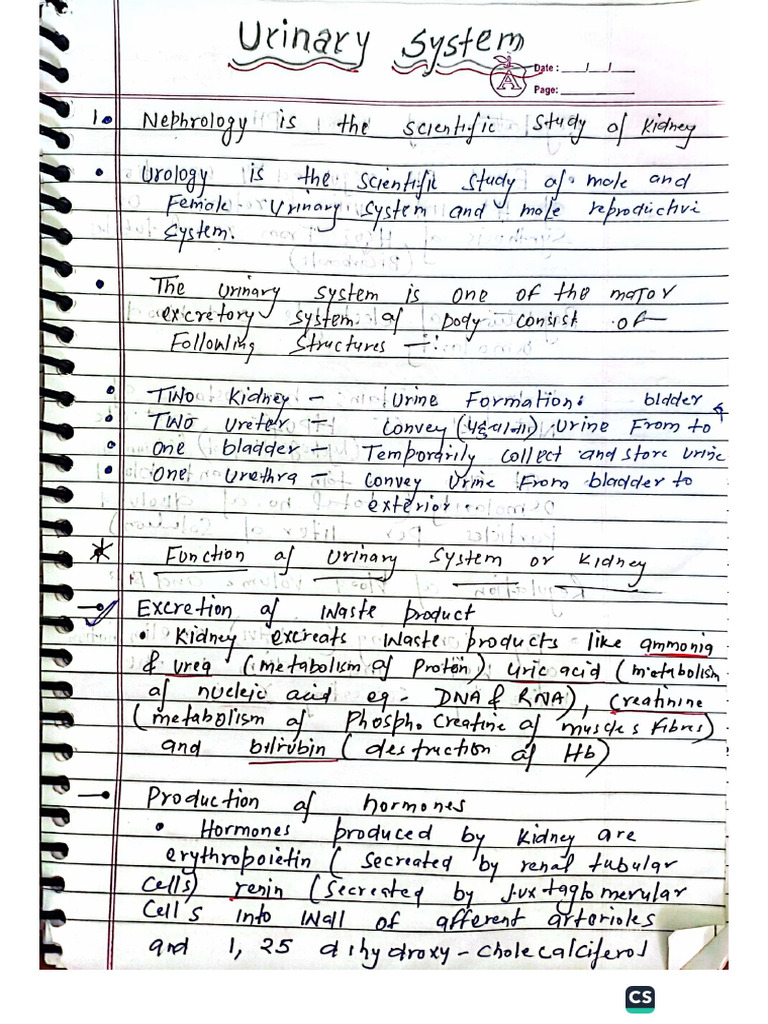 Urinary System
Date : ___/___/___
Page: ______
1. Nephrology is the scientific study of kidney
• Urology is the scientific study of male and
Female Urinary system and male reproductivi
system.
• The Urinary system is one of the major
excretory system of Body consist of
Following structures —:
• Two kidney – Urine Formation. bldder
• Two Ureter – convey (पहुँचाना) Urine From to
• one bladder – Temporarily collect and store Urine
• One Urethra – Convey Urine From bladder to
exterior
* Function of Urinary system or kidney
→ Excretion of waste product
• Kidney excreats waste products like ammonia
& ureq (metabolism of Protein) Uric acid (metabolism
of nucleic acid eg - DNA & RNA), Creatinine
(metabolism of Phospho. Creatine of muscles Fibres)
and bilrubin (destruction of Hb)
Production of hormones
• Hormones produced by kidney are
erythropoietin (secreated by renal tubular
Cells) renin (Secreated by Juxtaglomerular
Cells into wall of afferent arterioles
and 1, 25 dihydroxy-cholecalciferol
CS